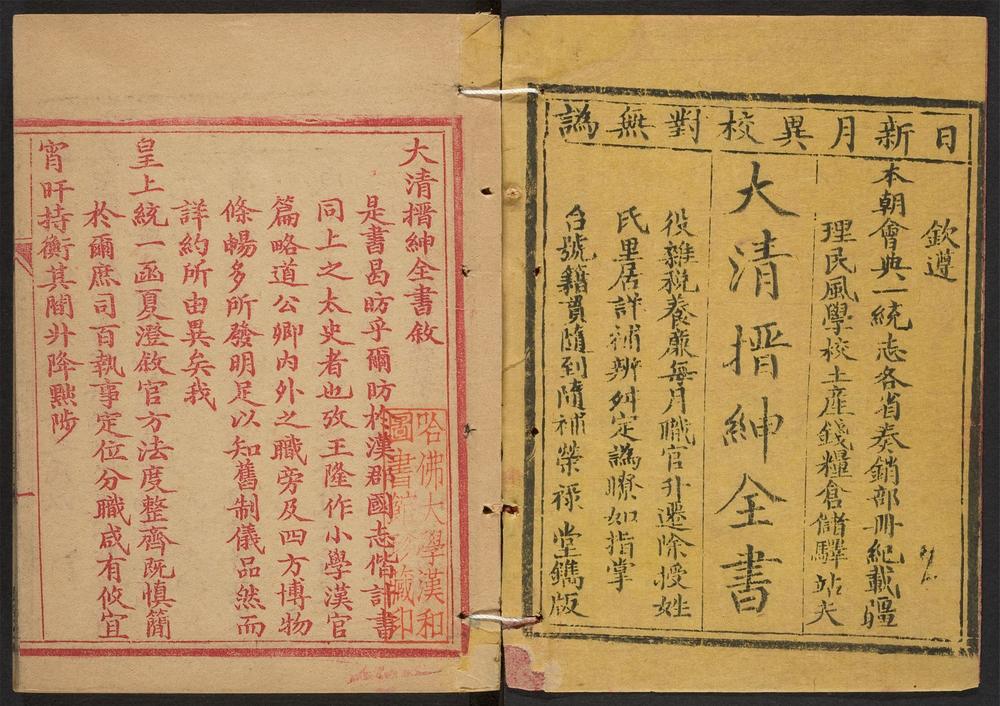 日新月異校對無譌
欽遵
本朝會典一統志各省奏銷部冊紀載疆
理民風學校土產錢糧倉儲驛站夫
大清搢紳全書
役雜稅養廉每月職官升遷除授姓
氏里居詳補辨舛定譌瞭如指掌
台號籍貫隨到隨補榮祿堂鐫版
大清搢紳全書敘
是書昌昉乎爾昉於漢郡國志偕計書
同上之太史者也攷王隆作小學漢官
篇略道公卿內外之職旁及四方博物
條暢多所發明足以知舊制儀品然而
詳約所由異矣我
皇上統一函夏澄敘官方法度整齊既慎簡
於爾庶司百執事定位分職咸有攸宜
宵旰持衡其間升降黜陟
哈佛大學漢和
圖書館珍藏印